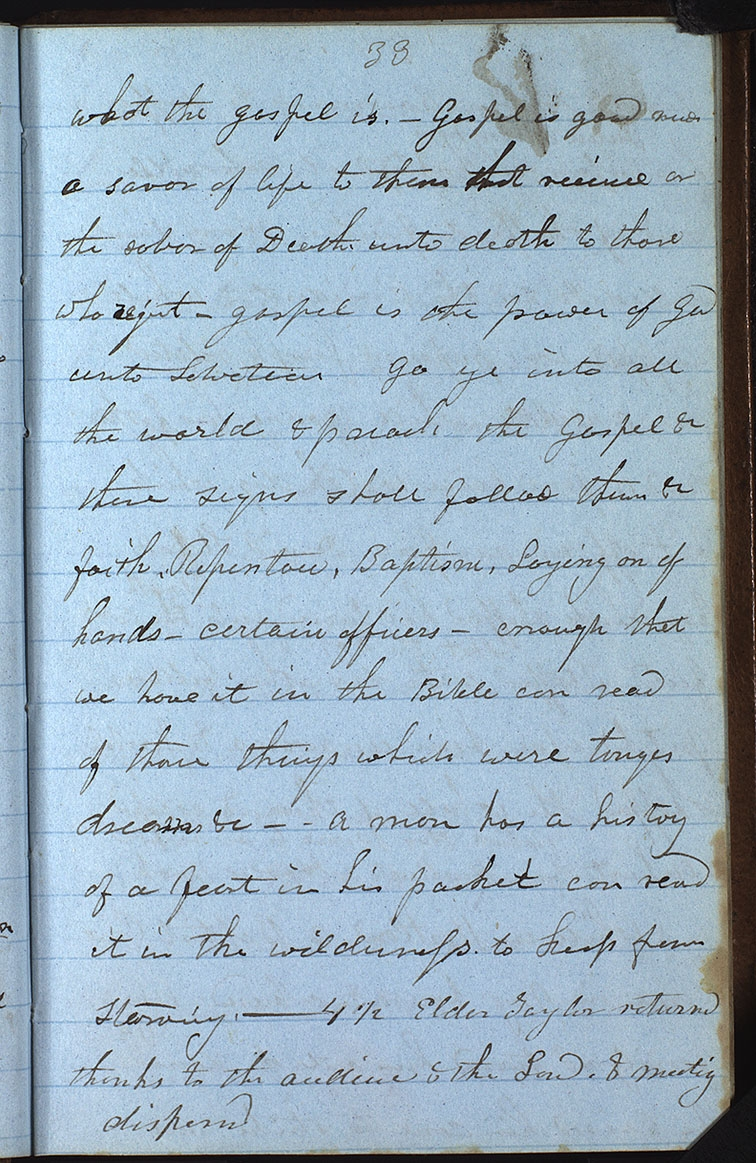 38
what the gospel is. – Gospel is good news
a savor of life to them that receive or
the sabor of Death unto death to those
who reject – gospel is the power of God
unto Salvation Go ye into all
the world & preach the Gospel &
these signs shall follow them &c
faith, Repentance, Baptism, Laying on of
hands – certain officers – enough that
we have it in the Bible can read
of those things which were tonges
dreams &c – - a man has a history
of a feast in his pocket can read
it in the wilderness. to keep from
starving. — 4 1/2 Elder Taylor returned
thanks to the audience & the Lord. & meeting
dispersed